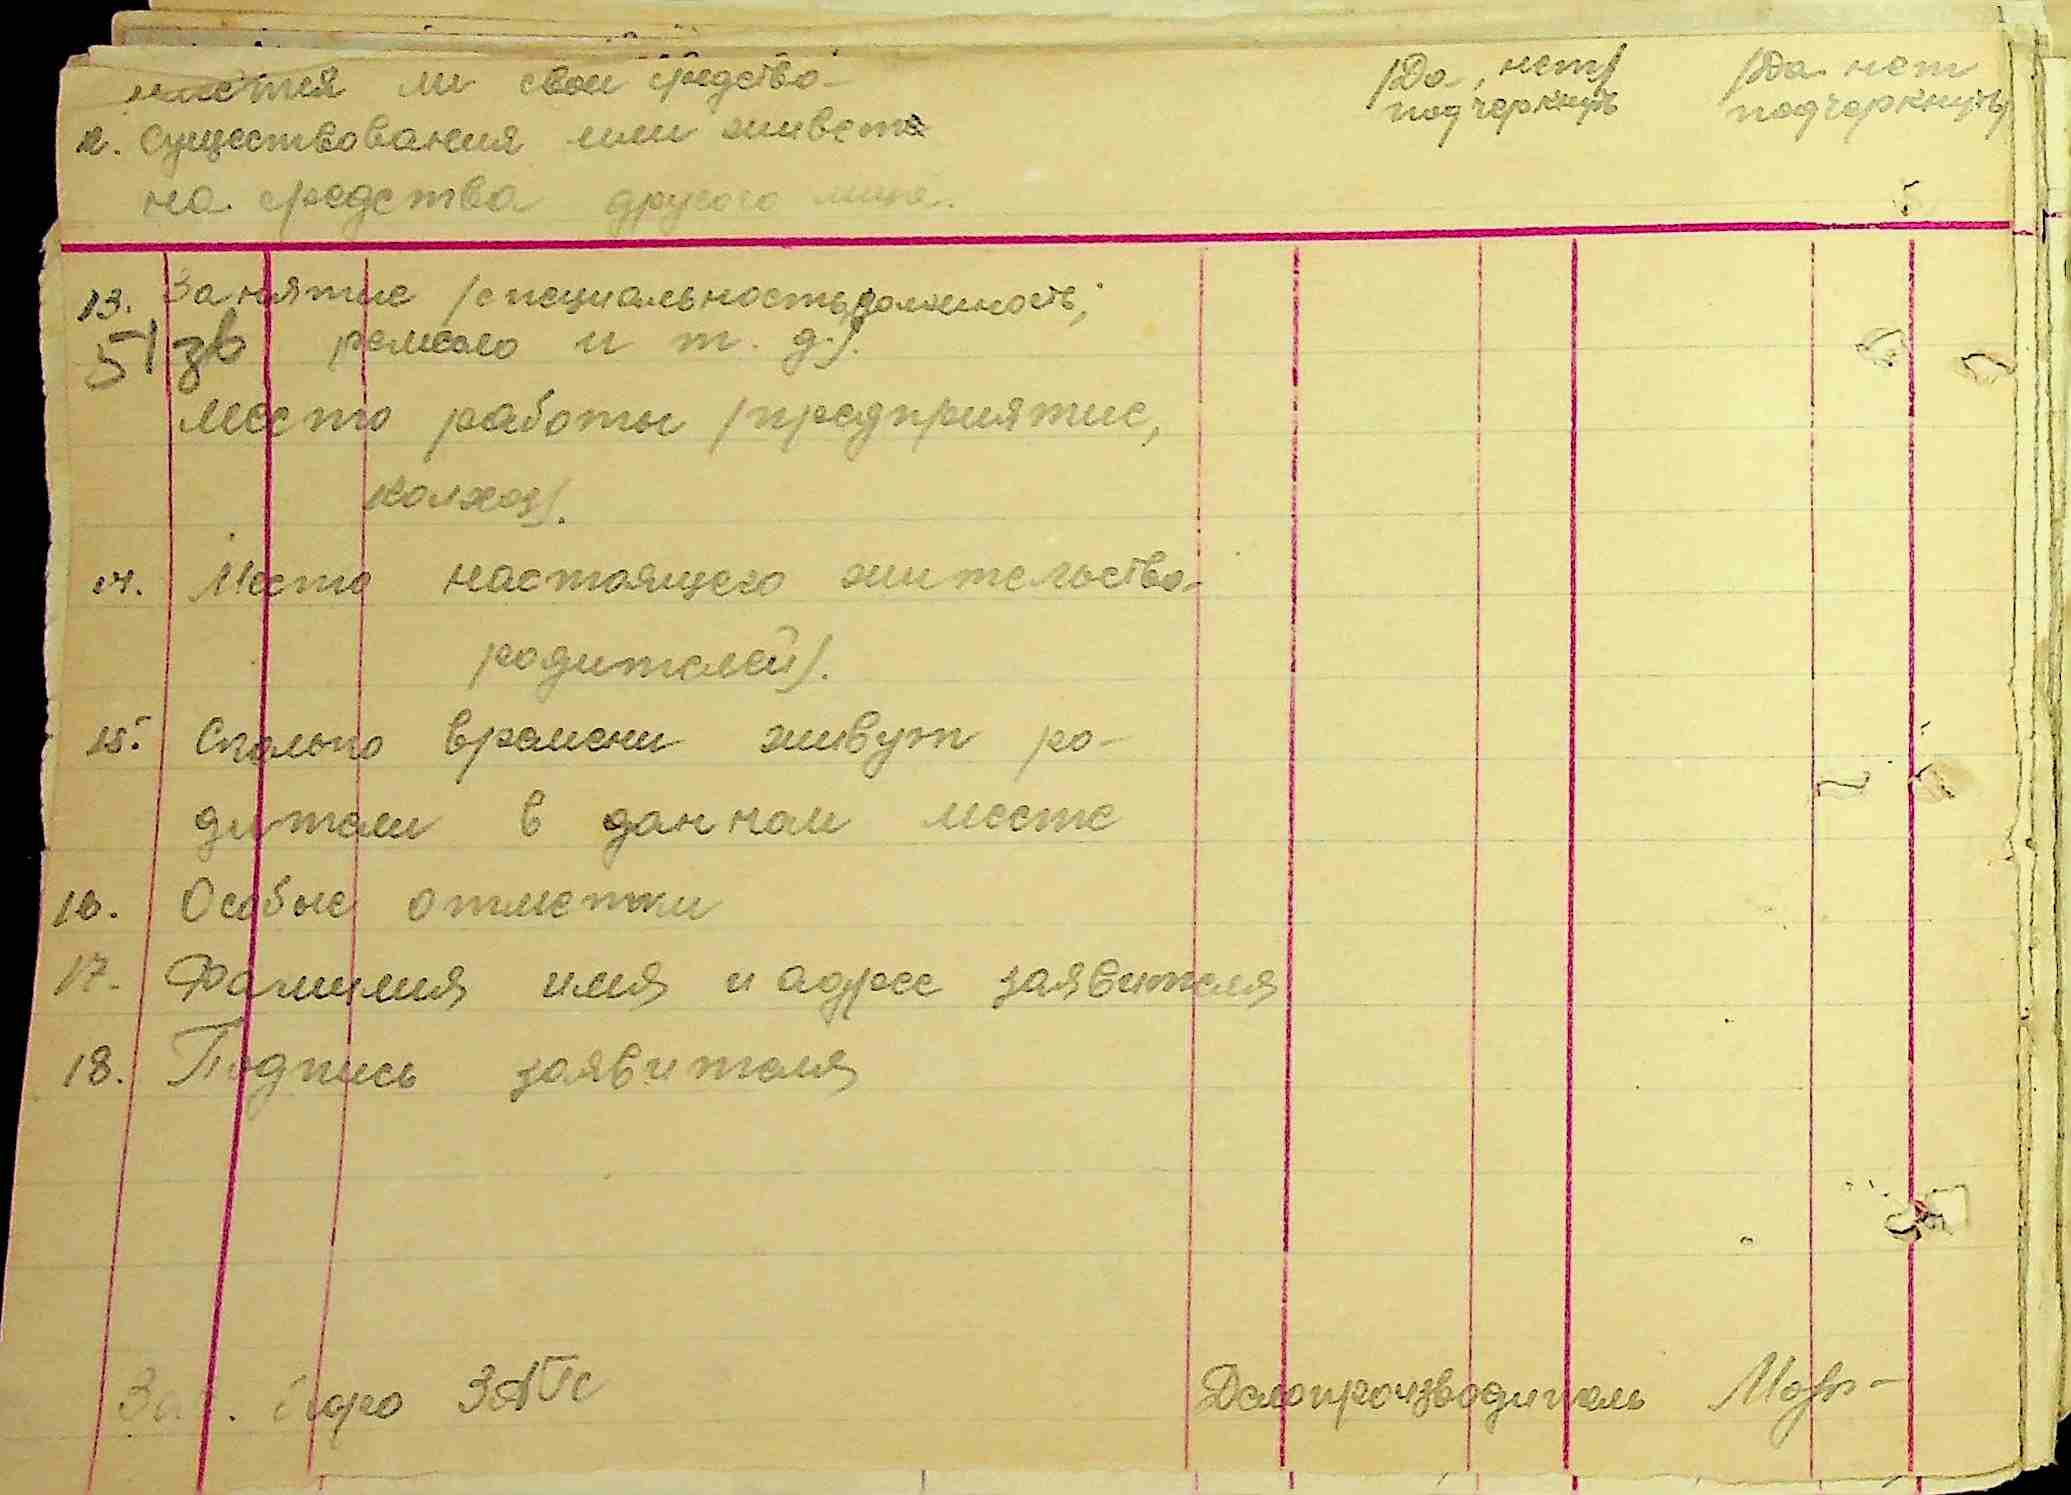 имеются ли свои средства /Да, нет/ /Да нет
12. существования или живет подчеркнуть подчеркнуть/
на средства другого лица.
13. Занятие /специальность, должность,
51 зв ремесло и т. д./.
Место работы /предприятие,
колхоз/.
14. Место настоящего жительства
родителей/.
15. Сколько времени живут ро-
дители в данном месте
16. Особые отметки
17. Фамилия имя и адрес заявителя
18. Подпись заявителя
Зав. бюро ЗАГС Делопроизводитель